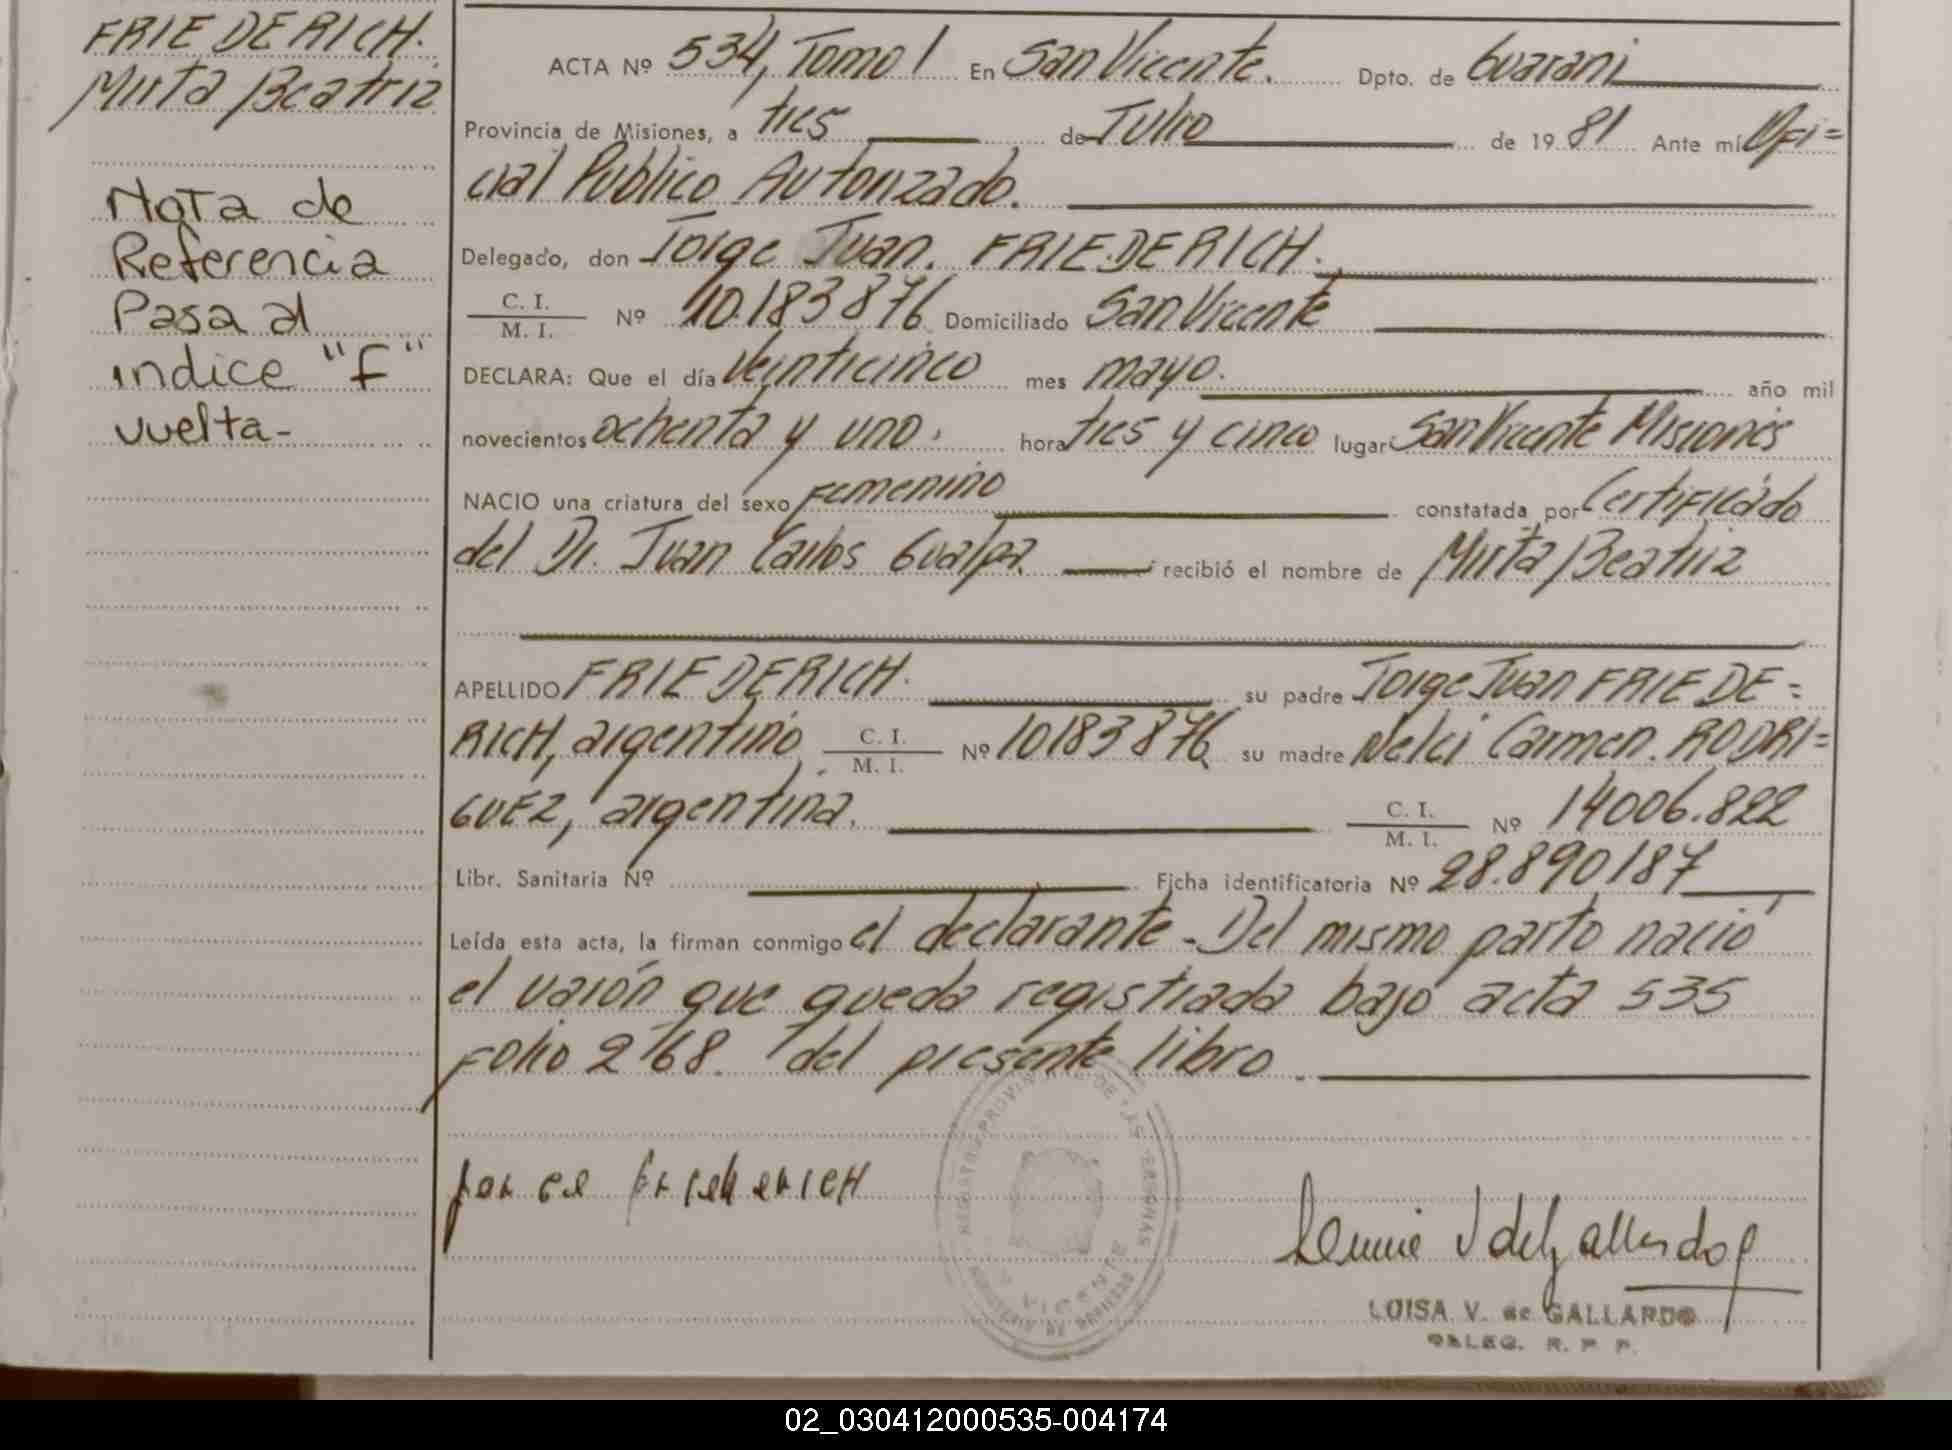 FRIEDERICH.
Mirta Beatriz
Nota de
Referencia
Pasa al
indice "F"
vuelta-
ACTA Nº 534, Tomo I En San Vicente. Dpto. de Guarani
Provincia de Misiones, a tres de Julio de 1981 Ante mí Ofi=
cial Publico Autorizado.
Delegado, don Jorge Juan. FRIEDERICH.
C. I.
M. I. Nº 10.183876 Domiciliado San Vicente
DECLARA: Que el día veinticinco mes mayo. año mil
novecientos ochenta y uno. hora tres y cinco lugar San Vicente Misiones
NACIO una criatura del sexo Femenino constatada por Certificado
del Dr. Juan Carlos Gualpa recibió el nombre de Mirta Beatriz
APELLIDO FRIEDERICH. su padre Jorge Juan FRIEDE=
RICH, argentino, C. I.
M. I. Nº 10183876 su madre Nelci Carmen. RODRI=
GUEZ, argentina. C. I.
M. I. Nº 14006.822
Libr. Sanitaria Nº Ficha identificatoria Nº 28.890187
Leída esta acta, la firman conmigo el declarante - Del mismo parto nació
el varón que queda registrada bajo acta 535
Folio 268. del presente libro.
REGISTRO PROVINCIAL DE LAS PERSONAS
VICENTE
MINISTERIO DE
LUISA V. de GALLARDO
DELEG. R. P. P.
02_030412000535-004174